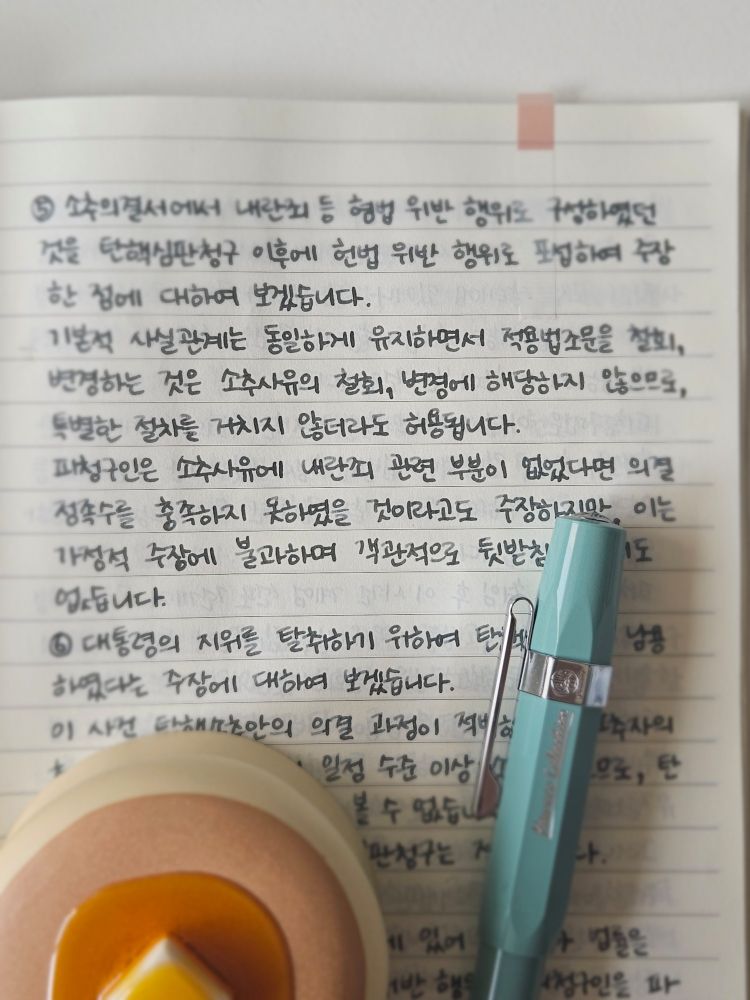 ⑤ 소추의결서에서 내란죄 등 형법 위반 행위로 구성하였던
것을 탄핵심판청구 이후에 헌법 위반 행위로 포섭하여 주장
한 점에 대하여 보겠습니다.
기본적 사실관계는 동일하게 유지하면서 적용법조문을 철회,
변경하는 것은 소추사유의 철회, 변경에 해당하지 않으므로,
특별한 절차를 거치지 않더라도 허용됩니다.
피청구인은 소추사유에 내란죄 관련 부분이 없었다면 의결
정족수를 충족하지 못하였을 것이라고도 주장하지만, 이는
가정적 주장에 불과하며 객관적으로 뒷받침
없습니다.
⑥ 대통령의 지위를 탈취하기 위하여 남용
하였다는 주장에 대하여 보겠습니다.
이 사건 탄핵소추안의 의결 과정이
일정 수준 이상 탄
볼 수
있어 법률을